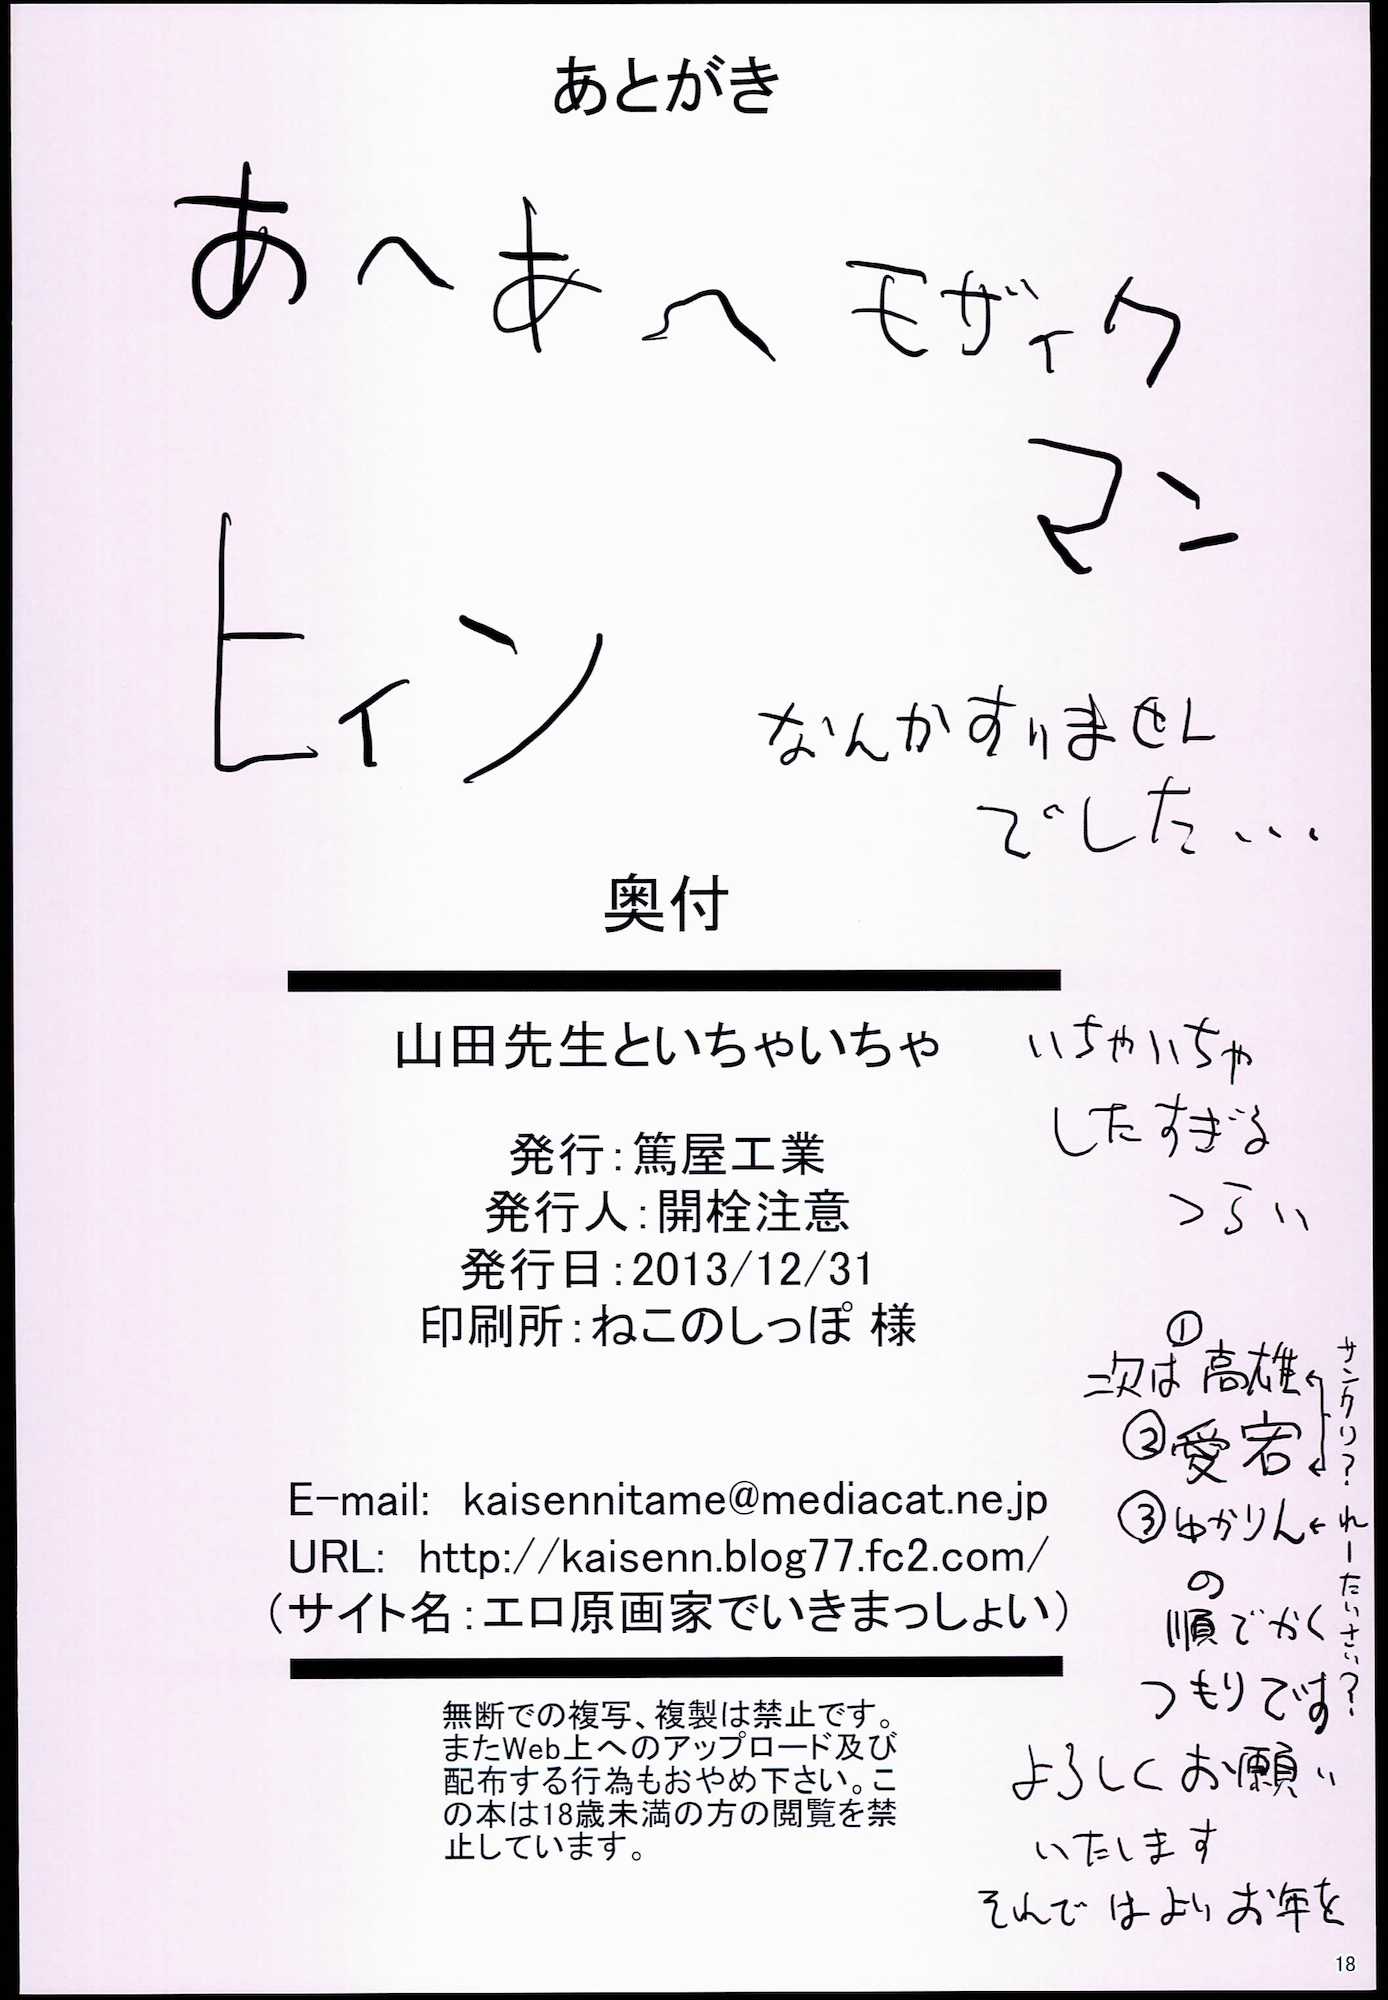 あとがき
あへあへ
モザイク
マン
ヒィン
なんかすいません
でした...
奥付
山田先生といちゃいちゃ
発行：篤屋工業
発行人：開栓注意
発行日：2013/12/31
印刷所：ねこのしっぽ 様
E-mail: kaisennitame@mediacat.ne.jp
URL: http://kaisenn.blog77.fc2.com/
（サイト名：エロ原画家でいきまっしょい）
無断での複写、複製は禁止です。
またWeb上へのアップロード及び
配布する行為もおやめ下さい。こ
の本は18歳未満の方の閲覧を禁
止しています。
いちゃいちゃ
したすぎる
つらい
次は①高雄
②愛宕
サンクリ？
③ゆかりん
れーたいさい？
の
順でかく
つもりです
よろしくお願い
いたします
それではよいお年を
18